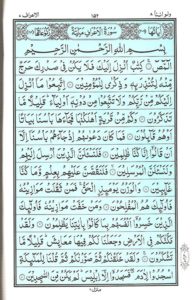 ولو اننا ٨
١٥٢
الاعراف ٧
سورة الاعراف مكية
بسم الله الرحمن الرحيم
المص كتب انزل اليك فلا يكن في صدرك حرج
منه لتنذر به وذكرى للمؤمنين اتبعوا ما انزل
اليكم من ربكم ولا تتبعوا من دونه اولياء قليلا ما
تذكرون وكم من قرية اهلكنها فجاءها باسنا بياتا
او هم قائلون فما كان دعوىهم اذ جاءهم باسنا الا ان
قالوا انا كنا ظلمين فلنسئلن الذين ارسل اليهم
ولنسئلن المرسلين فلنقصن عليهم بعلم وما كنا
غائبين والوزن يومئذ الحق فمن ثقلت موازينه
فاولئك هم المفلحون ومن خفت موازينه فاولئك
الذين خسروا انفسهم بما كانوا بايتنا يظلمون ولقد
مكنكم في الارض وجعلنا لكم فيها معايش قليلا ما
تشكرون ولقد خلقنكم ثم صورنكم ثم قلنا للملئكة
اسجدوا لادم فسجدوا الا ابليس لم يكن من السجدين